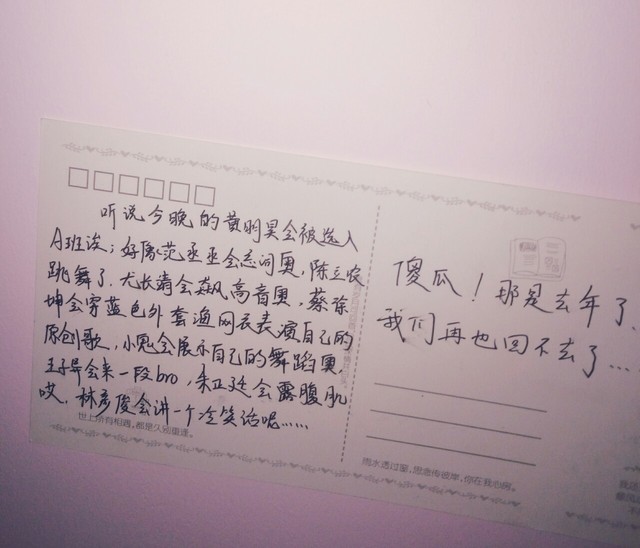 听说今晚的黄明昊会被选入
A班诶；好像范丞丞会忘词奥，陈立农
跳舞了，尤长靖会飙高音奥，蔡徐
坤会穿蓝色外套渔网衣表演自己的
原创歌，小鬼会展示自己的舞蹈奥，
王子异会来一段bro，朱正廷会露腹肌
哎，林彦俊会讲一个冷笑话呢……
世上所有相遇，都是久别重逢。
傻瓜！那是去年了、
我们再也回不去了…
雨水透过窗，思念传彼岸，你在我心间。